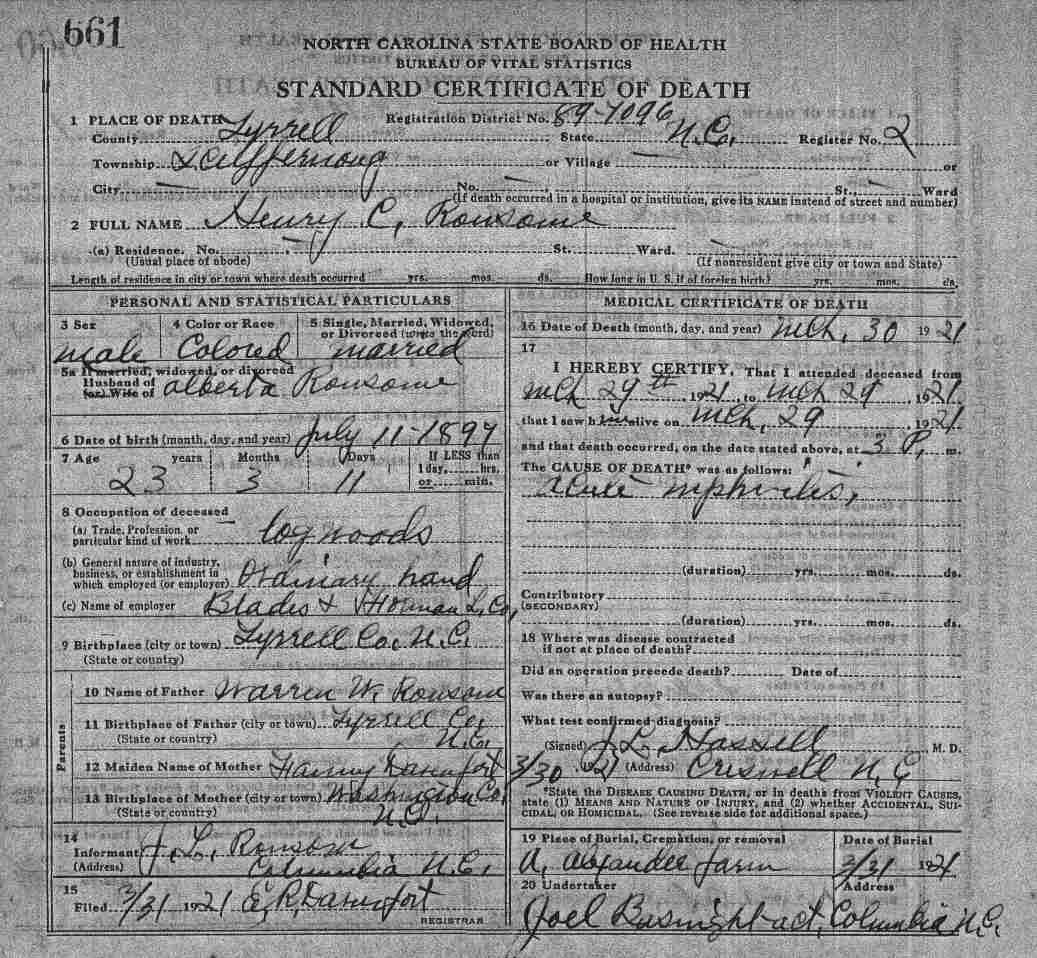 661
NORTH CAROLINA STATE BOARD OF HEALTH
BUREAU OF VITAL STATISTICS
STANDARD CERTIFICATE OF DEATH
1 PLACE OF DEATH Registration District No. 89-7096
County Tyrrell State N.C. Register No. 2
Township Scuppernong or Village — or
City — No. — St., — Ward
(If death occurred in a hospital or institution, give its NAME instead of street and number)
2 FULL NAME Henry C. Ronsome
(a) Residence. No. — St. Ward. —
(Usual place of abode) (If nonresident give city or town and State)
Length of residence in city or town where death occurred yrs. mos. ds. How long in U. S. if of foreign birth? yrs. mos. ds.
PERSONAL AND STATISTICAL PARTICULARS
3 Sex 4 Color or Race 5 Single, Married, Widowed,
or Divorced (write the word)
male Colored married
5a If married, widowed, or divorced
Husband of
(or) Wife of alberta Ronsome
6 Date of birth (month, day, and year) July 11-1897
7 Age years Months Days If LESS than
1 day, hrs.
or min.
23 3 11
8 Occupation of deceased —
(a) Trade, Profession, or
particular kind of work log woods
(b) General nature of industry,
business, or establishment in
which employed (or employer) Ordinary hand
(c) Name of employer Blades & L. Co,
9 Birthplace (city or town) Tyrrell Co. N.C.
(State or country)
Parents
10 Name of Father Warren W. Ronsome
11 Birthplace of Father (city or town) Tyrrell Co.
(State or country) N.C.
12 Maiden Name of Mother Fanny Davenport
13 Birthplace of Mother (city or town) Washington Co.
(State or country) N.C.
14
Informant J. L. Ronsom
(Address) Columbia N.C.
15
Filed 3/31 1921 E. R. Davenport
REGISTRAR
MEDICAL CERTIFICATE OF DEATH
16 Date of Death (month, day, and year) Mch. 30 1921
17
I HEREBY CERTIFY, That I attended deceased from
Mch 29th, 1921, to Mch 29, 1921.
that I saw him alive on Mch. 29, 1921.
and that death occurred, on the date stated above, at 3 P. m.
The CAUSE OF DEATH* was as follows:
acute
(duration) yrs. mos. ds.
Contributory
(SECONDARY)
(duration) yrs. mos. ds.
18 Where was disease contracted
if not at place of death?
Did an operation precede death? Date of
Was there an autopsy?
What test confirmed diagnosis?
(Signed) J. L. Hassell, M. D.
3/30 1921 (Address) Creswell N.C
*State the DISEASE CAUSING DEATH, or in deaths from VIOLENT CAUSES,
state (1) MEANS AND NATURE OF INJURY, and (2) whether ACCIDENTAL, SUI-
CIDAL, or HOMICIDAL. (See reverse side for additional space.)
19 Place of Burial, Cremation, or removal Date of Burial
A. Alexander farm 3/31 1921
20 Undertaker Address
Joel Basnight act, Columbia N.C.